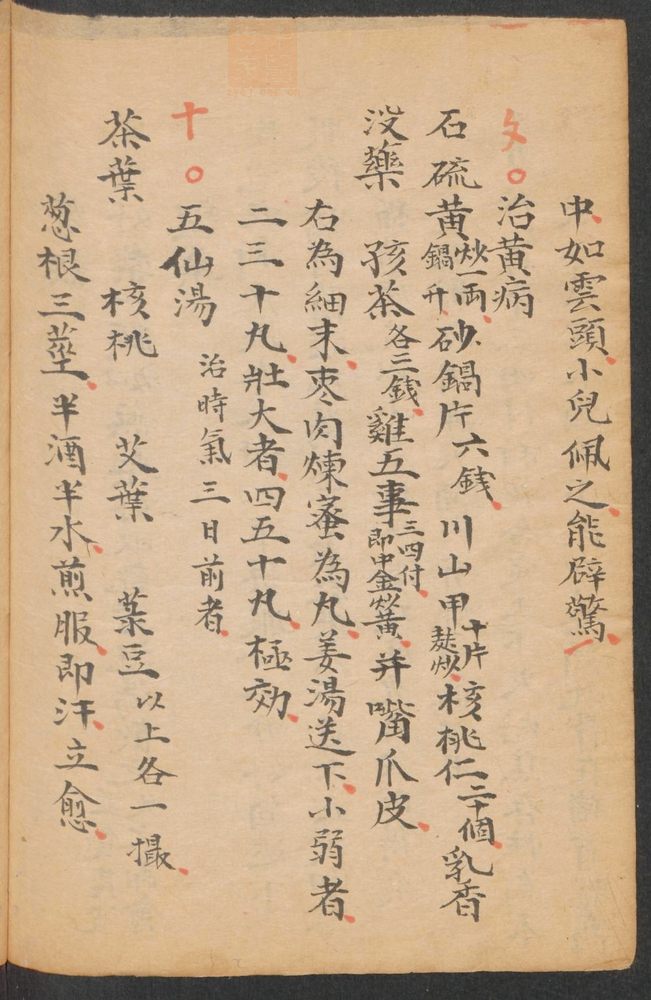 中如雲頭小兒佩之能辟驚
夂○治黄病
石硫黄炒一両鍋升砂鍋片六銭川山甲十片麩炒核桃仁二十個乳香
没藥 孩茶各三銭雞五事三四付即中金炒黄并嘴爪皮
右為細末枣肉煉蜜為丸姜湯送下小弱者
二三十丸壮大者四五十丸極効
十○五仙湯 治時氣三日前者
茶葉 核桃 艾葉 菉豆以上各一撮
葱根三莖半酒半水煎服即汗立愈